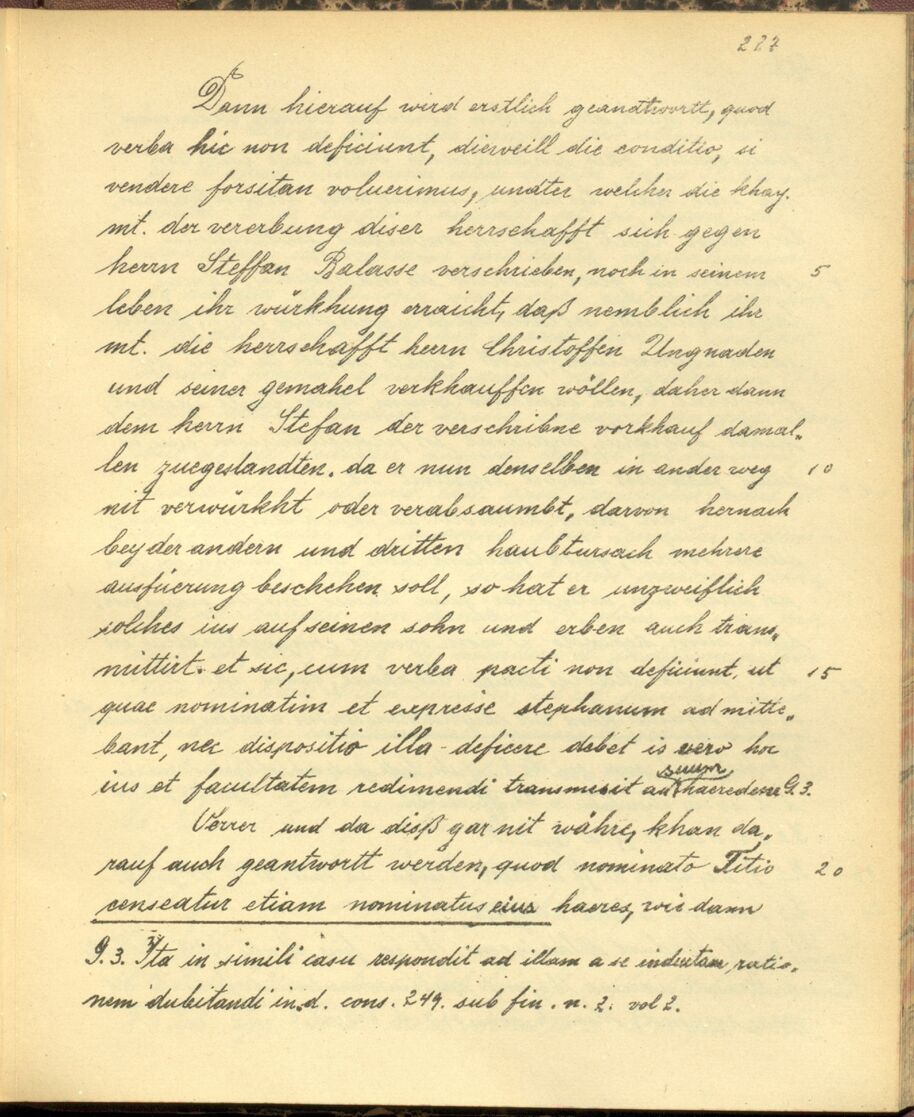 227
Dann hierauf wird erstlich geandtwortt, quod
verba hic non deficiunt, dieweill die conditio, si
vendere forsitan voluerimus, undter welcher die khay.
mt. der vererbung diser herrschafft sich gegen
herrn Steffan Balasse verschrieben, noch in seinem 5
leben ihr würkhung erraicht, daß nemblich ihr
mt. die herrschafft herrn Christoffen Ungnaden
und seiner gemahel verkhauffen wöllen, daher dann
dem herrn Stefan der verschribne vorkhauf damal„
len zuegestandten. da er nun denselben in ander weg 10
nit verwürkht oder verabsaumbt, darvon hernach
bey der andern und dritten haubtursach mehrere
ausfüerung beschehen soll, so hat er unzweiflich
solches ius auf seinen sohn und erben auch trans„
mittirt. et sic, cum verba pacti non deficiunt, ut 15
quae nominatim et expresse stephanum admitte„
bant, nec dispositio illa deficere debet is vero hoc
ius et facultatem redimendi transmisit ad suum haeredem G.3.
Verrer und da disß gar nit währe, khan da„
rauf auch geantwortt werden, quod nominato Titio 20
censeatur etiam nominatus eius haeres, wie dann
G.3. Ita in simili casu respondit ad illam a se indicatam ratio„
nem dubitandi in d. cons. 249. sub fin. n. 2. vol 2.